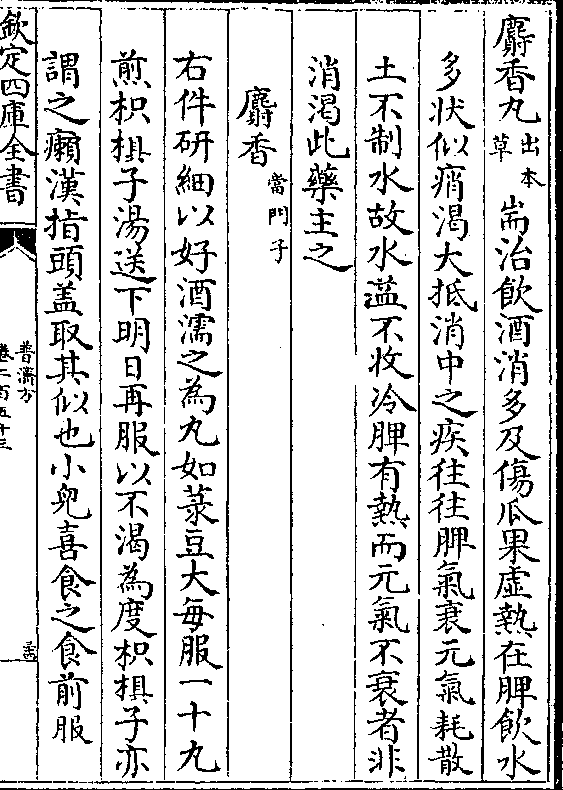 麝香丸出本草 耑治飲酒消多及傷瓜果虛熱在脾飲水
多状似痟渴大抵消中之疾徃徃脾氣衰元氣耗散
土不制水故水溢不收冷脾有熱而元氣不衰者非
消渴此藥主之
麝香當門子
右件研細以好酒濡之為丸如菉豆大每服一十丸
煎枳椇子湯送下明日再服以不渴為度枳椇子亦
謂之癩漢指頭盖取其似也小兒喜食之食前服
欽定四庫全書
普濟方
卷二百五十三